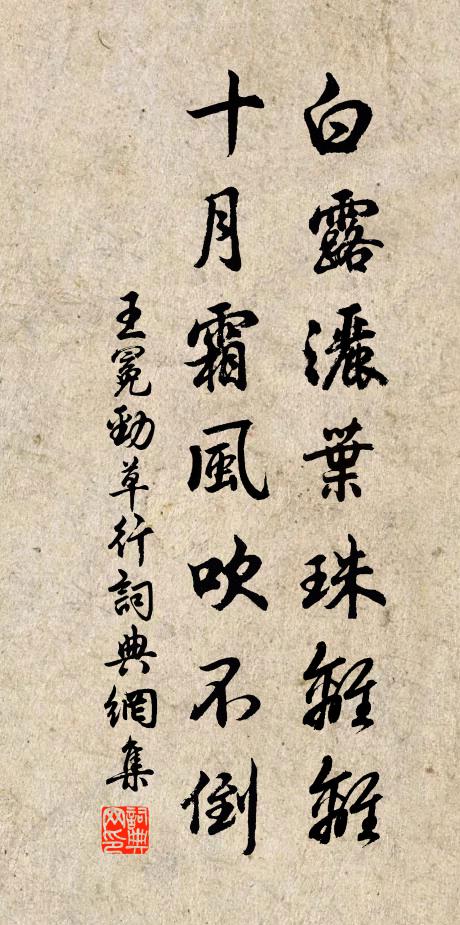 白露灑葉珠離離
十月霜風吹不倒
王冕勁草行詞典網集
詞典网印